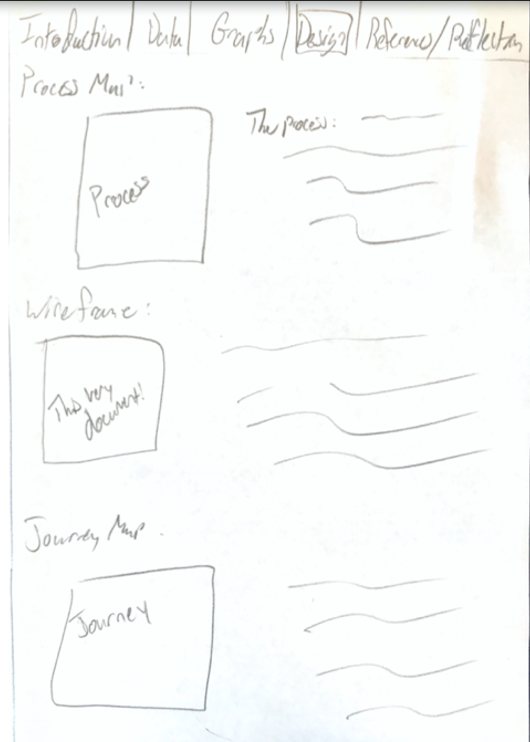 Introduction | Data | Graphs | Design | Reference/Reflection
Process Map:
The process:
Process
Wireframe:
This very
document!
Journey Map.
Journey